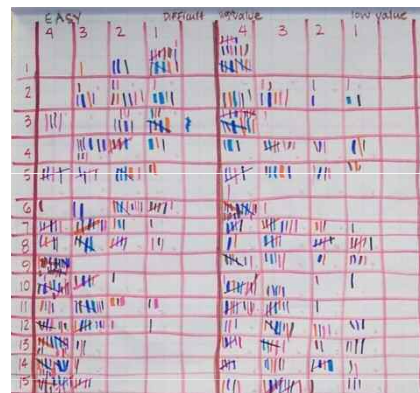 EASY Difficult high value low value
4 3 2 1 4 3 2 1
1
2
3
4
5
6
7
8
9
10
11
12
13
14
15